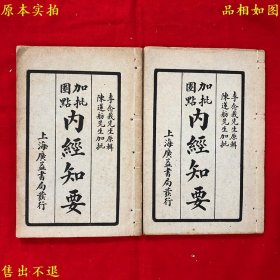 原本实拍
品相如图
李念莪先生原輯
陳蓮舫先生加批
加批
圈點
内經知要
上海廣益書局發行
李念莪先生原輯
陳蓮舫先生加批
加批
圈點
内經知要
上海廣益書局發行
售出不退